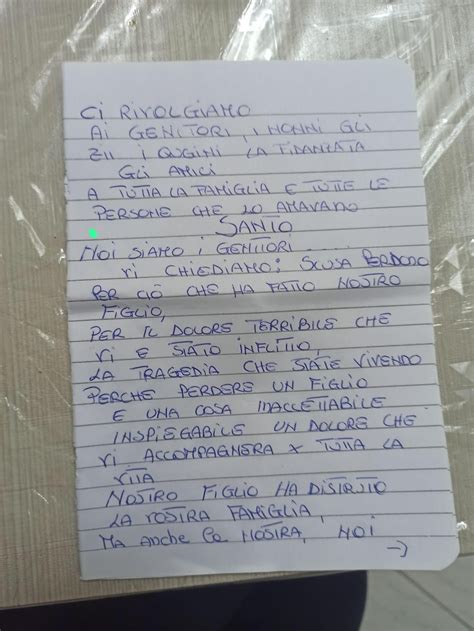 Ci RIVOLGIAMO
Ai GENITORI, i NONNI GLI
ZII i CUGINI LA FIDANZATA
GLI AMICI
A TUTTA LA FAMIGLIA E TUTTE LE
PERSONE CHE LO AMAVANO
SANTO
NOI SIAMO i GENITORI ......
Vi CHIEDIAMO: SCUSA PERDONO
PER CIÒ CHE HA FATTO NOSTRO
FIGLIO,
PER IL DOLORE TERRIBILE CHE
Vi E STATO INFLITTO,
LA TRAGEDIA CHE STATE VIVENDO
PERCHE PERDERE UN FIGLIO
E UNA COSA INACCETTABILE
INSPIEGABILE UN DOLORE CHE
Vi ACCOMPAGNERA X TUTTA LA
VITA
NOSTRO FIGLIO HA DISTRUTTO
LA VOSTRA FAMIGLIA,
MA Anche la NOSTRA, NOI
→